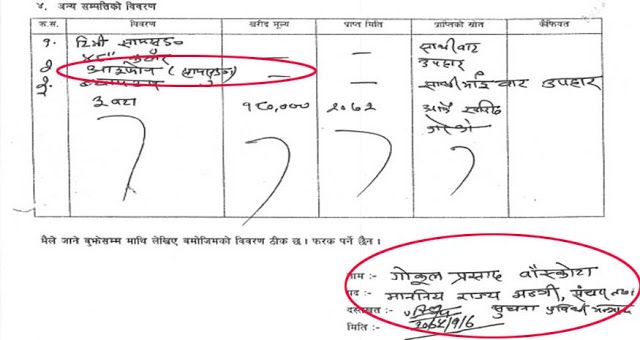 ४. अन्य सम्पत्तिको विवरण
क्र.स. विवरण खरीद मूल्य प्राप्त मिति प्राप्तिको स्रोत कैफियत
१. टिभी सामसुङ — — साथीबाट
४८" उपहार
२ आइफोन (सामसुङ) — — साथीभाई बाट उपहार
३.
३ वटा १८०,००० २०७२ आफै खरिद
गरेको
मैले जाने बुझेसम्म माथि लेखिए बमोजिमको विवरण ठीक छ। फरक पर्ने छैन।
नाम :- गोकुल प्रसाद बाँस्कोटा
पद :- माननिय राज्य मन्त्री, संचार तथा
दस्तखत :- सुचना प्रविधि मन्त्रालय
मिति :-